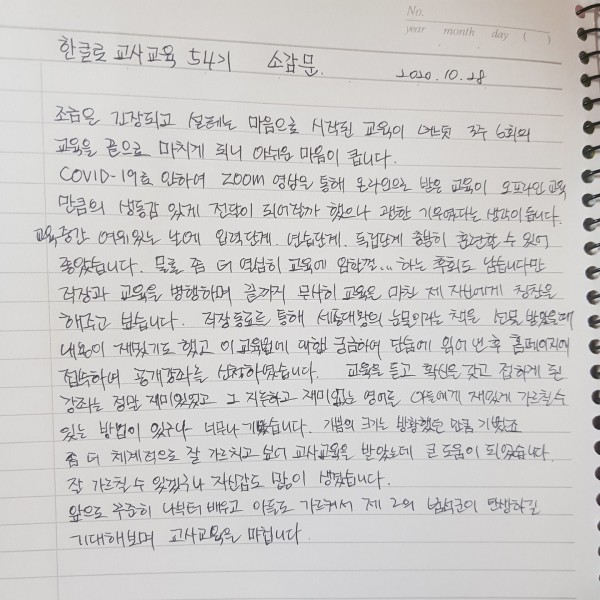 No.
year month day ( )
한글로 교사교육 54기 소감문.
2020.10.28
조금은 긴장되고 설레는 마음으로 시작된 교육이 어느덧 3주 6회의
교육을 끝으로 마치게 되니 아쉬운 마음이 큽니다.
COVID-19로 인하여 ZOOM 영상을 통해 온라인으로 받은 교육이 오프라인 교육
만큼의 생동감 있게 전달이 되어질까 했으나 괜한 기우였다는 생각이 듭니다.
교육중간 여유있는 날에 입력단계. 연습단계. 독립단계 충분히 훈련할 수 있어
좋았습니다. 물론 좀 더 열심히 교육에 임할껄... 하는 후회도 남습니다만
직장과 교육을 병행하며 끝까지 무사히 교육을 마친 제 자신에게 칭찬을
해주고 봅니다. 직장동료를 통해 세종대왕의 눈물이라는 책을 선물 받았을때
내용이 재밌기도 했고 이 교육원에 대해 궁금하여 단숨에 읽어 본 후 홈페이지에
접속하여 공개강좌를 신청하였습니다. 교육을 듣고 확신을 갖고 접하게 된
강좌는 정말 재미있었고 그 지루하고 재미없는 영어를 아들에게 재밌게 가르칠수
있는 방법이 있구나 너무나 기뻤습니다. 기쁨의 크기는 방황했던 만큼 기뻤죠
좀 더 체계적으로 잘 가르치고 싶어 교사교육을 받았는데 큰 도움이 되었습니다.
잘 가르칠 수 있겠구나 자신감도 많이 생겼습니다.
앞으로 꾸준히 나부터 배우고 아들도 가르쳐서 제 2의 탄생하길
기대해보며 교사교육을 마칩니다.